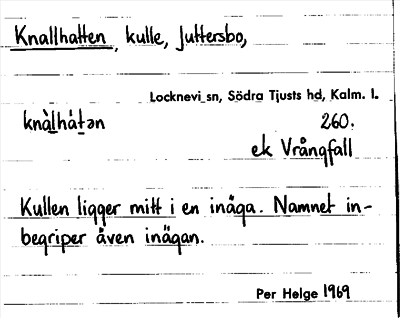 Knallhatten, kulle, Juttersbo,
Locknevi sn, Södra Tjusts hd, Kalm. l.
knàlhátən 260.
ek Vrångfall
Kullen ligger mitt i en inäga. Namnet in-
begriper även inägan.
Per Helge 1969